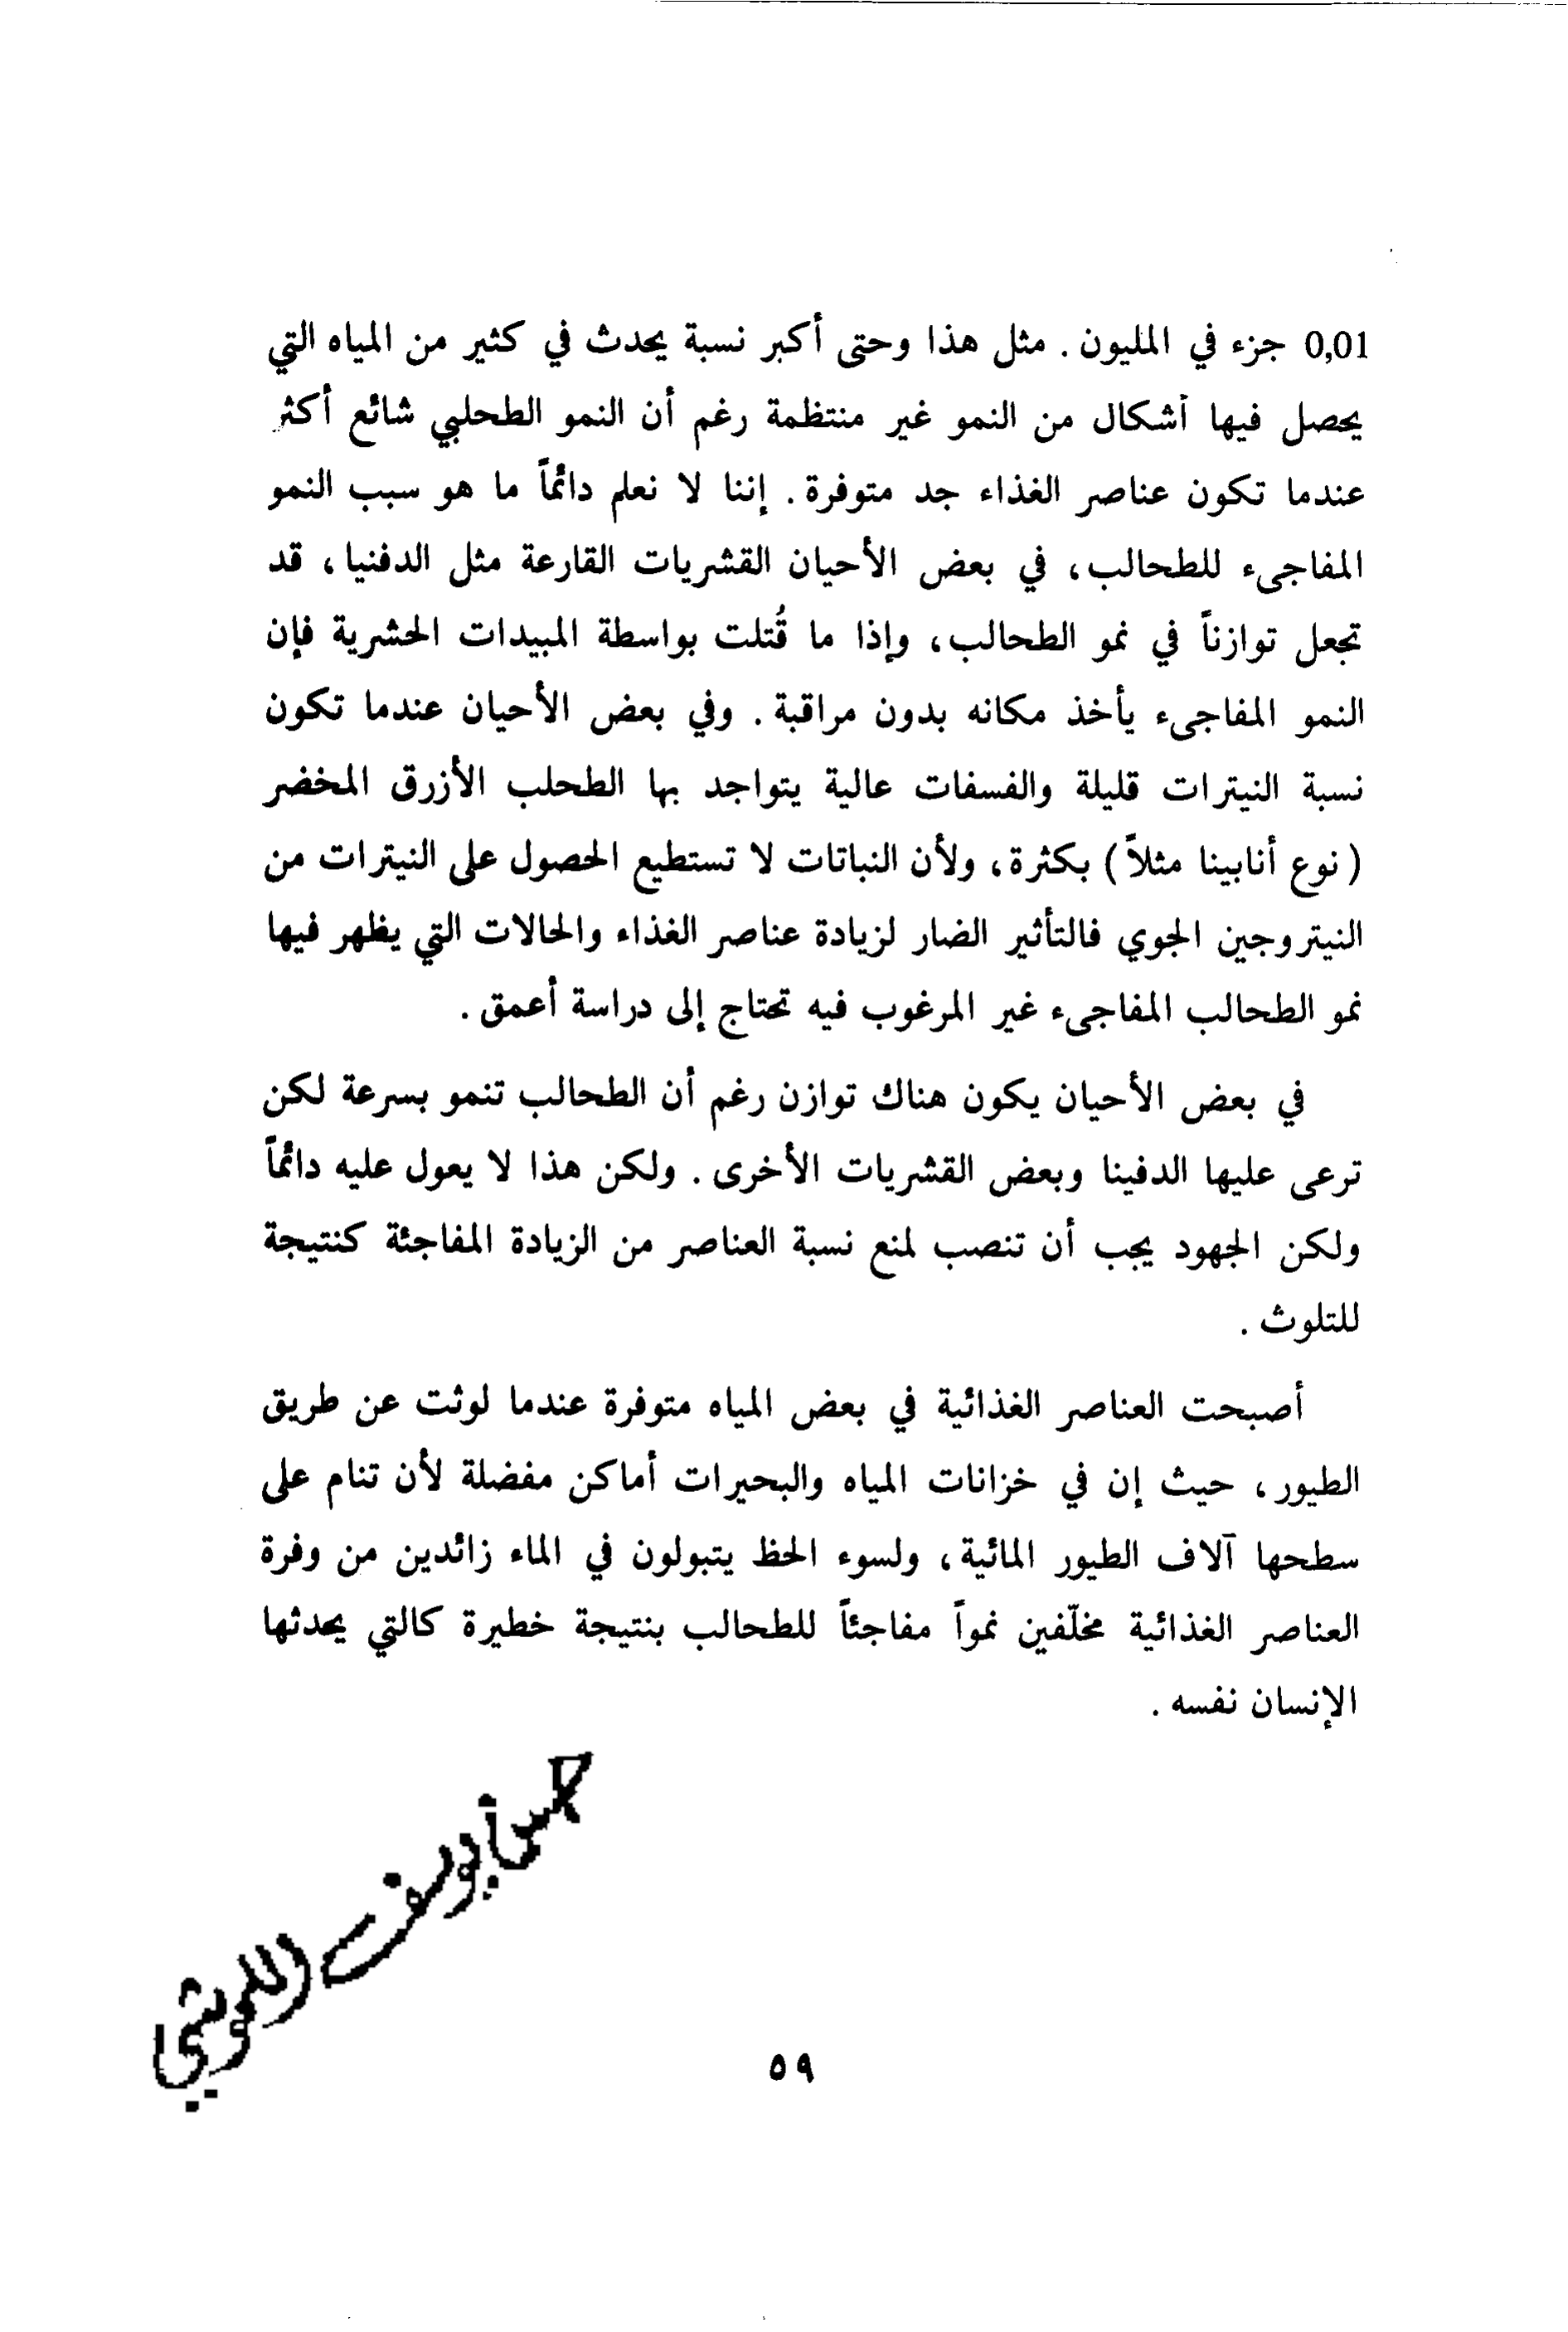 0,01 جزء في المليون . مثل هذا وحتى أكبر نسبة يحدث في كثير من المياه التي
يحصل فيها أشكال من النمو غير منتظمة رغم أن النمو الطحلبي شائع أكثر
عندما تكون عناصر الغذاء جد متوفرة . إننا لا نعلم دائماً ما هو سبب النمو
المفاجىء للطحالب ، في بعض الأحيان القشريات القارعة مثل الدفنيا ، قد
تجعل توازناً في نمو الطحالب ، وإذا ما قُتلت بواسطة المبيدات الحشرية فإن
النمو المفاجىء يأخذ مكانه بدون مراقبة . وفي بعض الأحيان عندما تكون
نسبة النيترات قليلة والفسفات عالية يتواجد بها الطحلب الأزرق المخضر
( نوع أنابينا مثلاً ) بكثرة ، ولأن النباتات لا تستطيع الحصول على النيترات من
النيتروجين الجوي فالتأثير الضار لزيادة عناصر الغذاء والحالات التي يظهر فيها
نمو الطحالب المفاجىء غير المرغوب فيه تحتاج إلى دراسة أعمق .
في بعض الأحيان يكون هناك توازن رغم أن الطحالب تنمو بسرعة لكن
ترعى عليها الدفينا وبعض القشريات الأخرى . ولكن هذا لا يعول عليه دائماً
ولكن الجهود يجب أن تنصب لمنع نسبة العناصر من الزيادة المفاجئة كنتيجة
للتلوث .
أصبحت العناصر الغذائية في بعض المياه متوفرة عندما لوثت عن طريق
الطيور ، حيث إن في خزانات المياه والبحيرات أماكن مفضلة لأن تنام على
سطحها آلاف الطيور المائية ، ولسوء الحظ يتبولون في الماء زائدين من وفرة
العناصر الغذائية مخلّفين نمواً مفاجئاً للطحالب بنتيجة خطيرة كالتي يحدثها
الإنسان نفسه .
٥٩